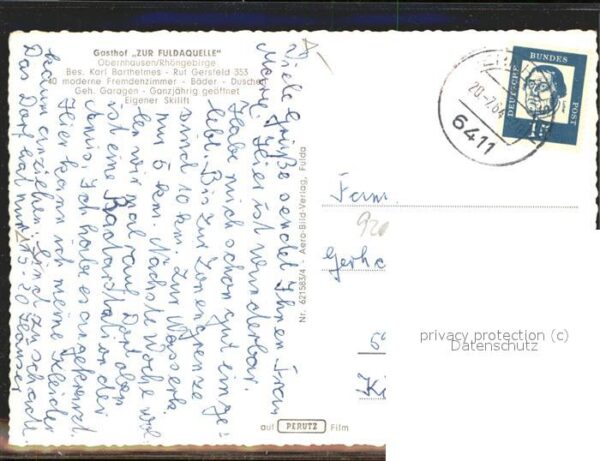 Gasthof „ZUR FULDAQUELLE"
Obernhausen/Rhöngebirge
Bes. Karl Barthelmes - Ruf Gersfeld 353
40 moderne Fremdenzimmer - Bäder - Duschen
Geh. Garagen - Ganzjährig geöffnet
Eigener Skilift
Viele Grüße sendet Ihnen Frau
Hier ist wunderbar.
Habe mich schon gut einge=
lebt. Bis zur Zonengrenze
sind 10 km. Zur Wasserk.
nur 5 km. Nächste Woche wol=
len wir mal rauf. Dort oben
ist eine Radarstation der
Amis. Ich habe es angekreuzt.
Hier kann ich meine Kleider
kaum anziehen. Sind zu schade.
Das Dorf hat nur 15-20 Häuser
Nr. 621583/4 - Aero-Bild-Verlag, Fulda
auf PERUTZ Film
DEUTSCHE BUNDESPOST
15
20.-7.64
6411
Fam.
Gerha
privacy protection (c)
Datenschutz